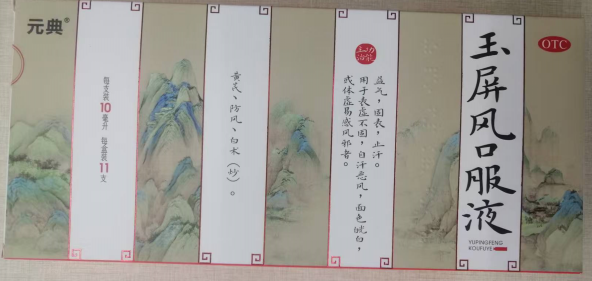 元典®
每支装10毫升 每盒装11支
黄芪、防风、白术（炒）。
功能主治
益气，固表，止汗。
用于表虚不固，自汗恶风，面色㿠白，
或体虚易感风邪者。
玉屏风口服液
YUPINGFENG
KOUFUYE
OTC